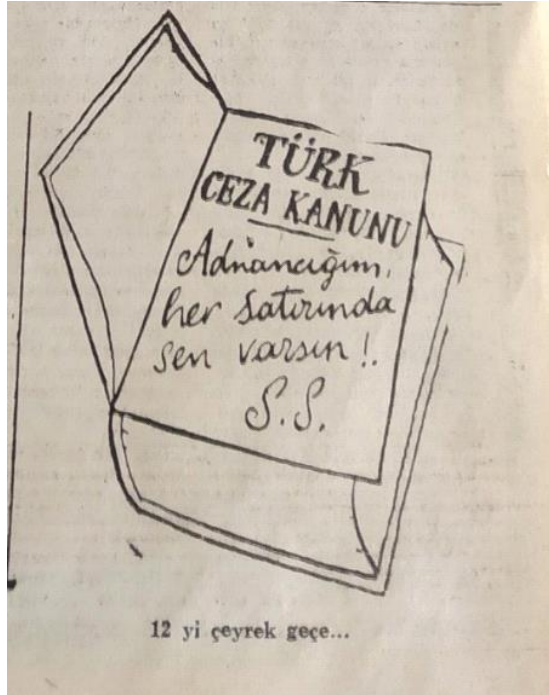 TÜRK
CEZA KANUNU
Adnancığım,
her satırında
sen varsın!.
S.S.
12 yi çeyrek geçe...